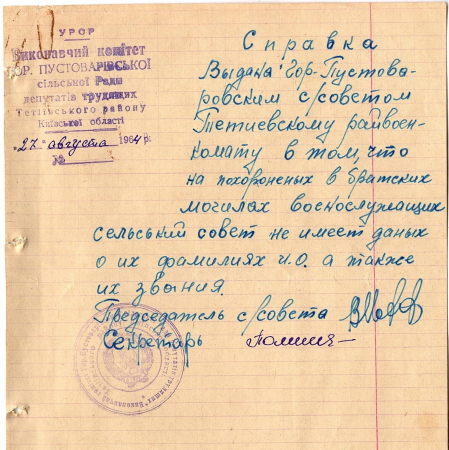 УРСР
Виконавчий комітет
ГОР. ПУСТОВАРІВСЬКОЇ
сільської Ради
депутатів трудящих
Тетіївського району
Київської області
"27" августа 1964 р.
№
Справка
Выдана Гор-Пустова-
ровским с/советом
Тетиевскому райвоен-
комату в том, что
на похороненых в братских
могилах военослужащих
сельський совет не имеет даных
о их фамилиях и.о. а также
их звания.
Председатель с/совета
Секретарь